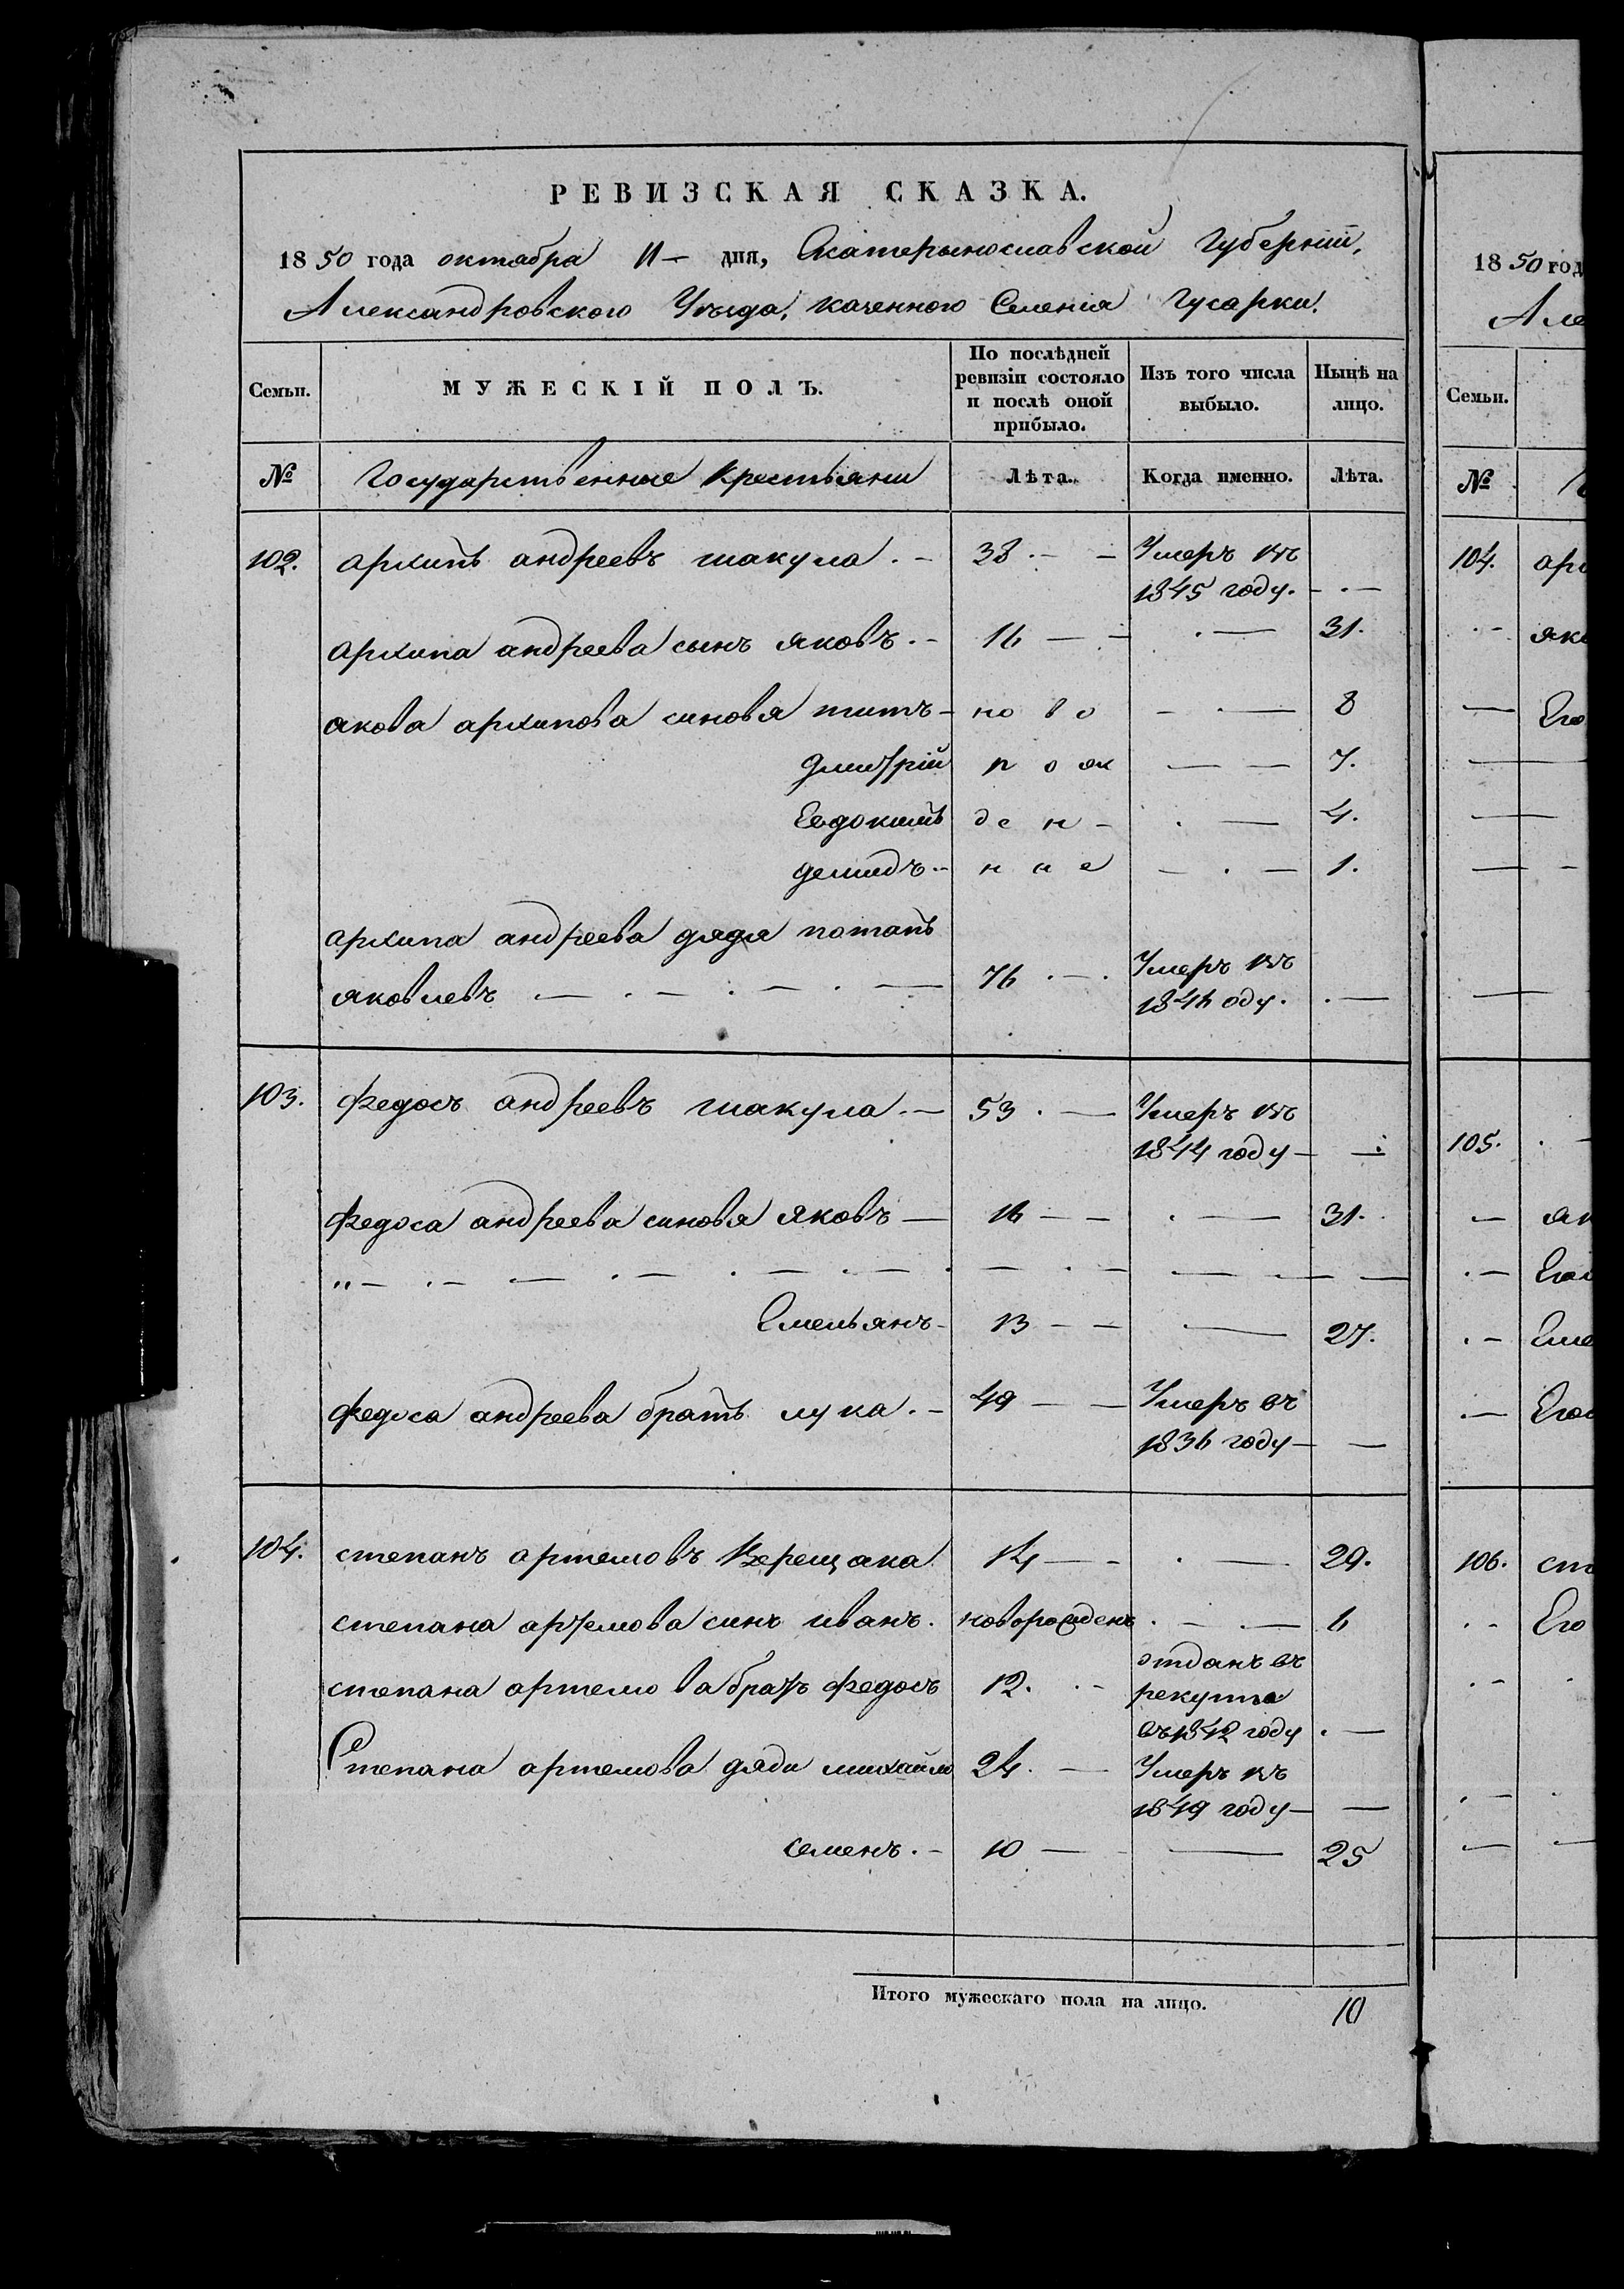 РЕВИЗСКАЯ СКАЗКА.
1850 года октабра 11 – дня, Екатерынославской Губернии,
Александровского Уѣзда, казенного Селенія Гусарки.
Семьи. МУЖЕСКІЙ ПОЛЪ. По послѣдней ревизіи состояло и послѣ оной прибыло. Изъ того числа выбыло. Нынѣ на лицо.
№ Государственные Крестьяни Лѣта. Когда именно. Лѣта.
102. архипъ андреевъ шакула. – 38. – – Умеръ въ
1845 году. – . –
архипа андреева сынъ яковъ. – 16 – – . – 31.
якова архипова синовя титъ – но во – . – 8
дмитрій р о ж – – 7.
Евдокимъ де н – . – 4.
демидъ. – н и е – . – 1.
архипа андреева дядя потапъ
яковлевъ – . – . – . – 76 . – . Умеръ въ
1846 оду. . –
103. Федосъ андреевъ шакула. – 53 . – Умеръ въ
1844 году – –
Федоса андреева синовя яковъ – 16 – – . – 31.
„ – . – – . – . – . – . – . – – . – –
Емельянъ – 13 – – – 27.
Федоса андреева братъ лука. – 49 – – Умеръ въ
1836 году – –
104. степанъ артемовъ Верещака 14 – – . – 29.
степана артемова синъ иванъ. новорожденъ . – . – 6
степана артемова братъ Федосъ 12. . – отданъ въ
рекути
въ 1842 году . –
Степана артемова дяди михайло 24. – Умеръ въ
1849 году – –
семенъ. – 10 – – 25
Итого мужескаго пола на лицо. 10
1850 год
Але
Семьи.
№
104. ар
як
Его
105. . –
як
Его
Еме
Его
106. ст
Его